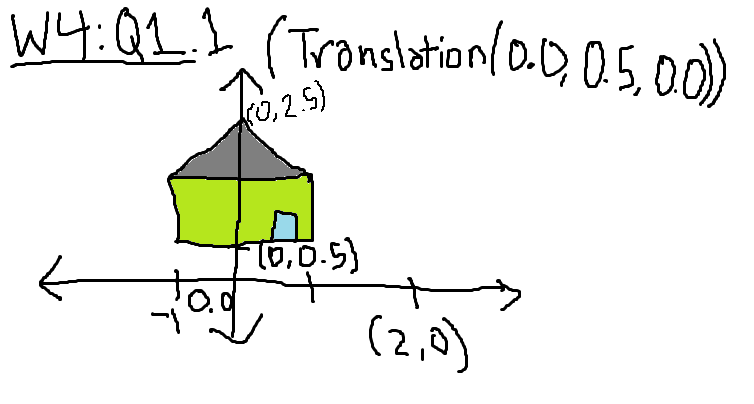 W4:Q1.1 (Translation(0.0, 0.5, 0.0))
(0, 2.5)
(0, 0.5)
-1 0.0
(2,0)